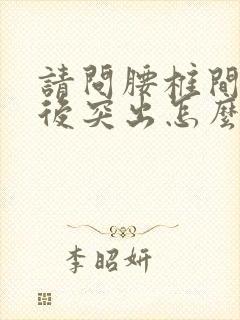 請問腰柱間
後突出怎麼
李昭妍